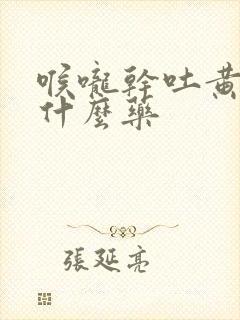 喉嚨幹吐黄
什麼藥
張延亮